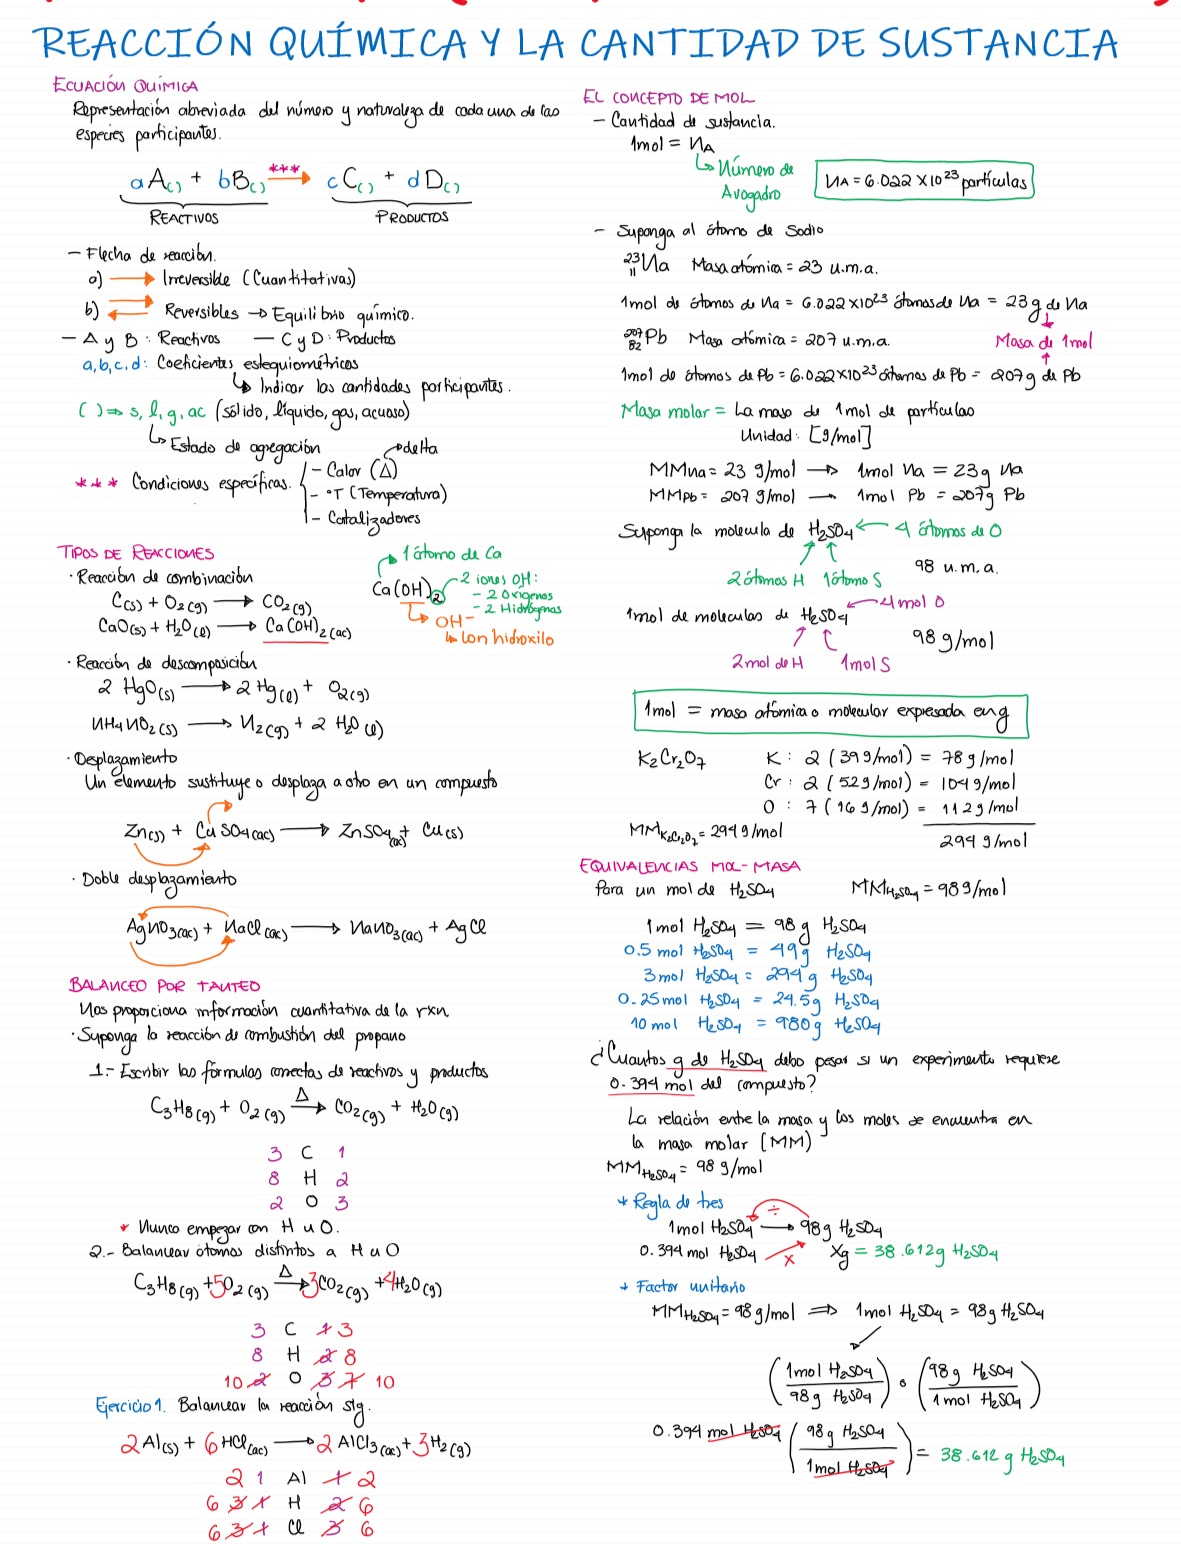 REACCIÓN QUÍMICA Y LA CANTIDAD DE SUSTANCIA
ECUACIÓN QUÍMICA
Representación abreviada del número y naturaleza de cada una de las
especies participantes.
aA( ) + bB( ) *** → cC( ) + dD( )
REACTIVOS PRODUCTOS
- Flecha de reacción.
a) → Irreversible (Cuantitativas)
b) ⇄ Reversibles → Equilibrio químico.
- A y B: Reactivos - C y D: Productos
a,b,c,d: Coeficientes estequiométricos
↳ Indicar las cantidades participantes.
( ) ⇒ s, l, g, ac (sólido, líquido, gas, acuoso)
↳ Estado de agregación
delta
*** Condiciones específicas.
- Calor (Δ)
- °T (Temperatura)
- Catalizadores
TIPOS DE REACCIONES
· Reacción de combinación
C(s) + O2(g) → CO2(g)
CaO(s) + H2O(l) → Ca(OH)2(ac)
1 átomo de Ca
Ca(OH)2
2 iones OH:
- 2 Oxígenos
- 2 Hidrógenos
↳ OH-
↳ Ion hidroxilo
· Reacción de descomposición
2 HgO(s) → 2 Hg(l) + O2(g)
NH4NO2(s) → N2(g) + 2 H2O(l)
· Desplazamiento
Un elemento sustituye o desplaza a otro en un compuesto
Zn(s) + CuSO4(ac) → ZnSO4(ac) + Cu(s)
· Doble desplazamiento
AgNO3(ac) + NaCl(ac) → NaNO3(ac) + AgCl
BALANCEO POR TANTEO
Nos proporciona información cuantitativa de la rxn
· Suponga la reacción de combustión del propano
1.- Escribir las fórmulas correctas de reactivos y productos
C3H8(g) + O2(g) Δ→ CO2(g) + H2O(g)
3 C 1
8 H 2
2 O 3
* Nunca empezar con H u O.
2.- Balancear átomos distintos a H u O
C3H8(g) + 5O2(g) Δ→ 3CO2(g) + 4H2O(g)
3 C 1 3
8 H 2 8
10 2 O 3 7 10
Ejercicio 1. Balancear la reacción sig.
2Al(s) + 6HCl(ac) → 2AlCl3(ac) + 3H2(g)
2 1 Al 1 2
6 3 1 H 2 6
6 3 1 Cl 3 6
EL CONCEPTO DE MOL
- Cantidad de sustancia.
1mol = NA
↳ Número de
Avogadro
NA = 6.022 X 10²³ partículas
- Suponga al átomo de Sodio
²³₁₁Na Masa atómica = 23 u.m.a.
1mol de átomos de Na = 6.022X10²³ átomos de Na = 23g de Na
²⁰⁷₈₂Pb Masa atómica = 207 u.m.a.
Masa de 1mol
1mol de átomos de Pb = 6.022X10²³ átomos de Pb = 207g de Pb
Masa molar = La masa de 1mol de partículas
Unidad: [g/mol]
MMNa = 23 g/mol → 1mol Na = 23g Na
MMPb = 207 g/mol → 1mol Pb = 207g Pb
Suponga la molecula de H2SO4 ← 4 átomos de O
2 átomos H 1 átomo S 98 u.m.a.
1mol de moleculas de H2SO4 ← 4 mol O
98 g/mol
2 mol de H 1mol S
1mol = masa atómica o molecular expresada en g
K2Cr2O7 K: 2 (39 g/mol) = 78 g/mol
Cr: 2 (52g/mol) = 104 g/mol
O: 7 (16 g/mol) = 112 g/mol
MMK2Cr2O7 = 294 g/mol
294 g/mol
EQUIVALENCIAS MOL-MASA
Para un mol de H2SO4 MMH2SO4 = 98g/mol
1mol H2SO4 = 98g H2SO4
0.5 mol H2SO4 = 49g H2SO4
3mol H2SO4 = 294g H2SO4
0.25mol H2SO4 = 24.5g H2SO4
10 mol H2SO4 = 980g H2SO4
¿Cuantos g de H2SO4 debo pesar si un experimento requiere
0.394 mol del compuesto?
La relación entre la masa y los moles se encuentra en
la masa molar (MM)
MMH2SO4 = 98 g/mol
* Regla de tres
÷
1mol H2SO4 → 98g H2SO4
0.394 mol H2SO4 x Xg = 38.612g H2SO4
* Factor unitario
MMH2SO4 = 98g/mol ⇒ 1mol H2SO4 = 98g H2SO4
(1mol H2SO4 / 98g H2SO4) o (98g H2SO4 / 1mol H2SO4)
0.394 mol H2SO4 (98g H2SO4 / 1mol H2SO4) = 38.612 g H2SO4